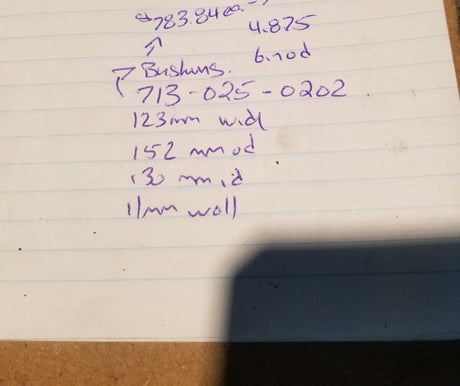 783.84ea.
4.875
6.110d
Bushings.
713-025-0202
123mm wide
152 mm od
130 mm id
11mm wall